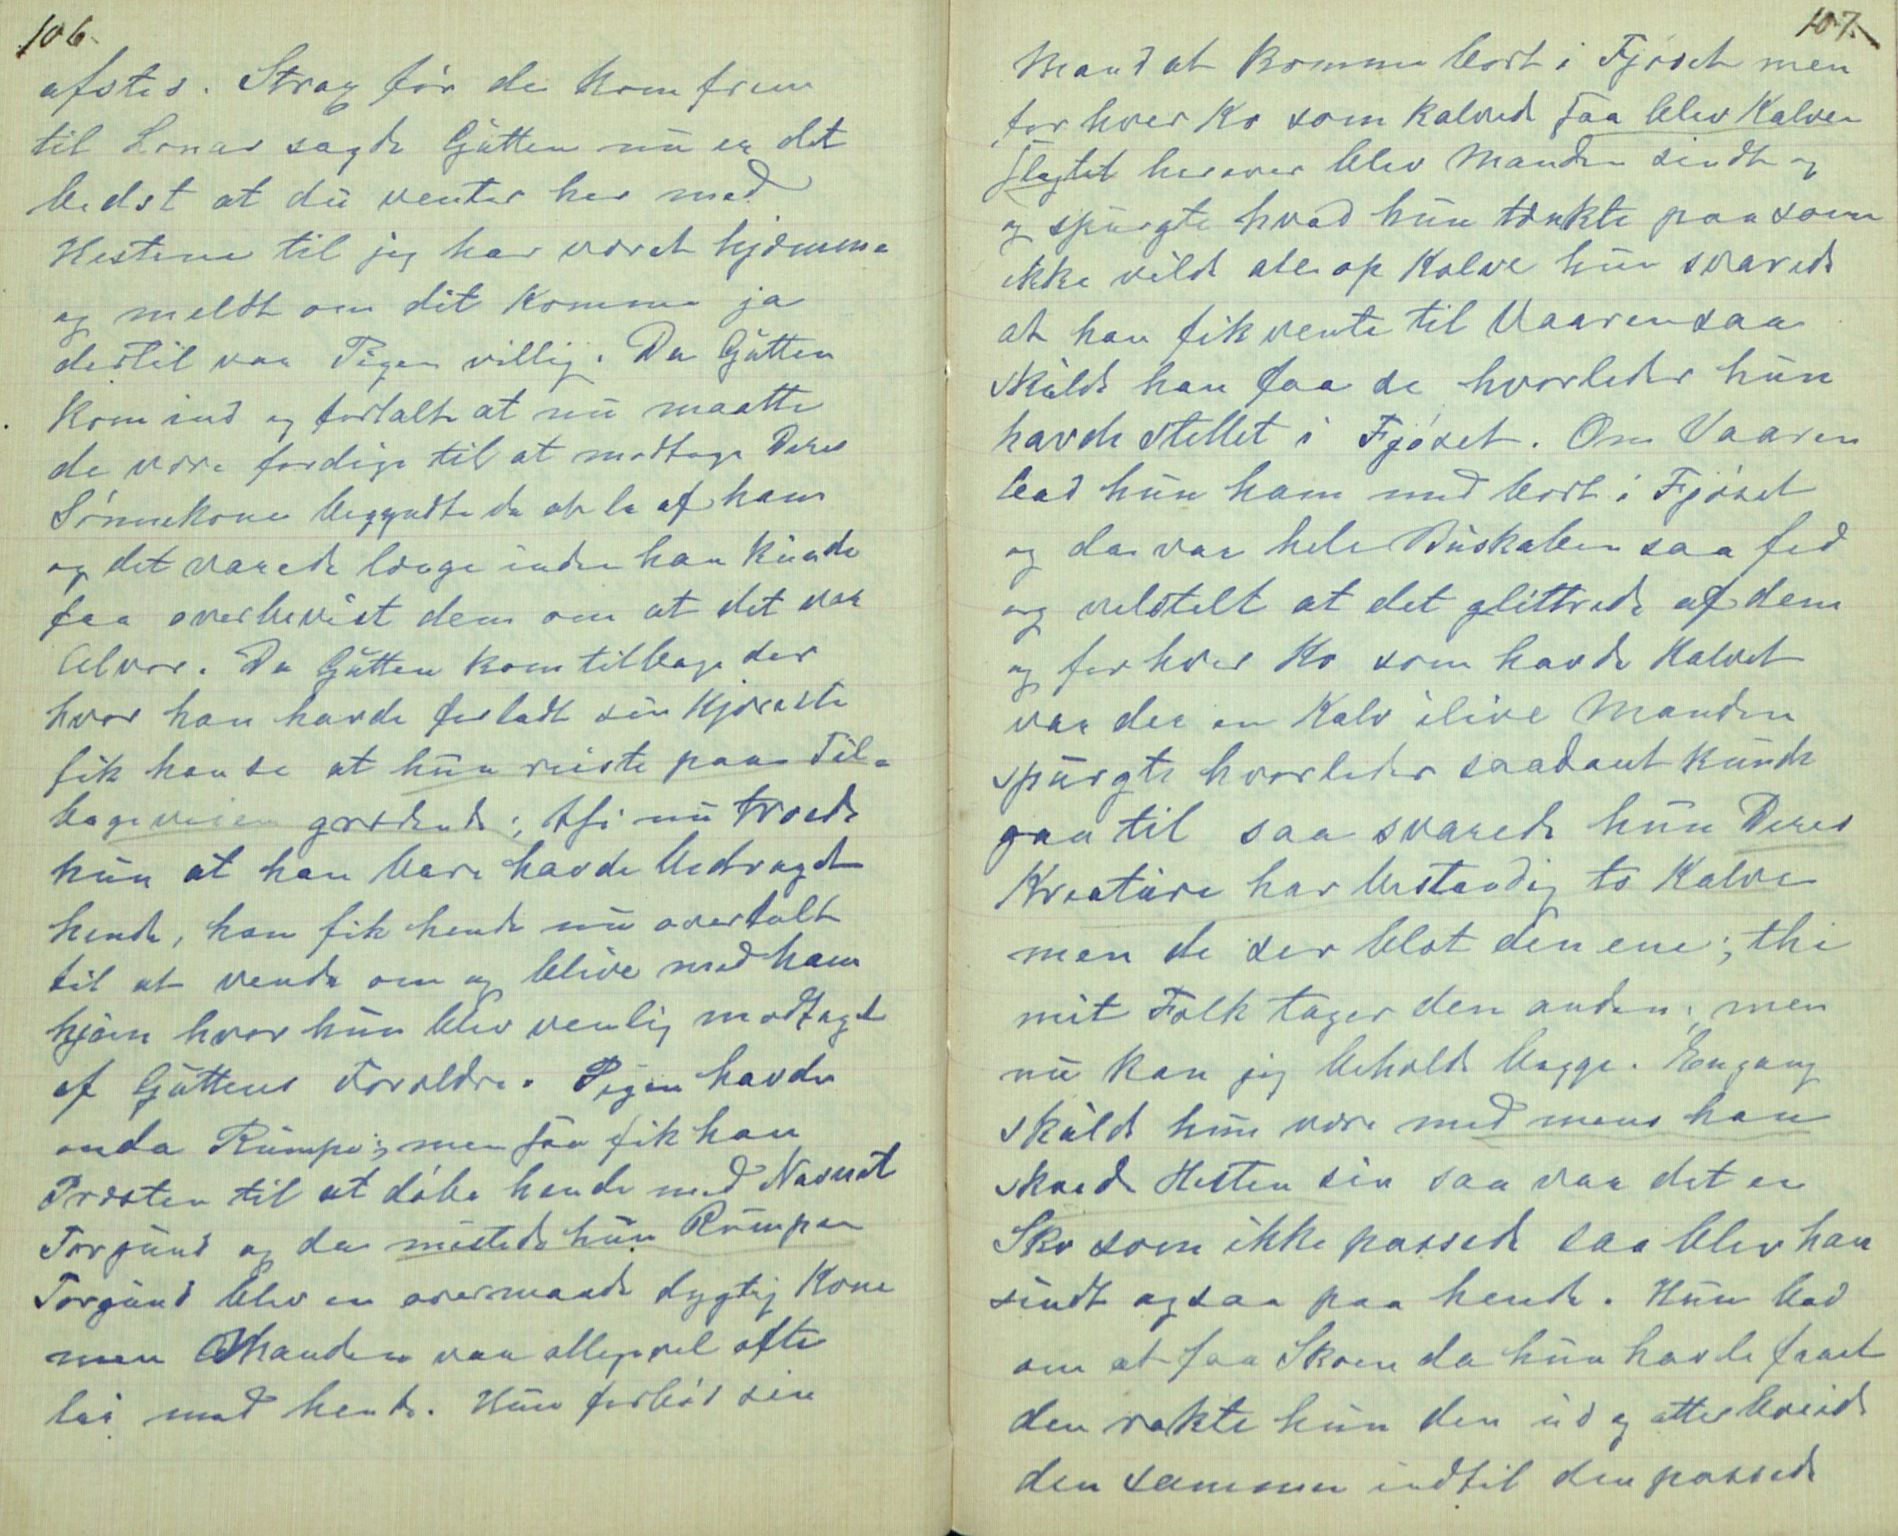 106.
afsted. Strax før de kom frem
til Lonar sagde Gutten nu er det
bedst at du venter her med
Hestene til jeg har været hjemme
og meldt om dit Komme ja
dertil var Pigen villig. Da Gutten
kom ind og fortalte at nu maatte
de være færdige til at modtage Deres
Sønnekone begyndte de at le af ham
og det varede længe inden han kunde
faa overbevist dem om at det var
Alvor. Da Gutten kom tilbage der
hvor han havde forladt sin Kjæreste
fik han se at hun reiste paa Til-
bageveien grædende; thi nu troede
hun at han bare havde bedraget
hende, han fik hende nu overtalt
til at vende om og blive med ham
hjem hvor hun blev venlig modtaget
af Guttens Forældre. Pigen havde
enda Rumpe; men saa fik han
Præsten til at døbe hende med Navnet
Torgund og da mistede hun Rumpen
Torgund blev en overmaade dygtig Kone
men Manden var allegevel ofte
lei med hende. Hun forbød sin
107.
Mand at komme bort i Fjøset men
for hver Ko som kalvede saa blev Kalven
slagtet herover blev Manden sindt og
og spurgte hvad hun tænkte paa som
ikke vilde ale op Kalve hun svarede
at han fik vente til Vaaren saa
skulde han faa se hvorledes hun
havde stellet i Fjøset. Om Vaaren
bad hun ham med bort i Fjøset
og da var hele Buskaben saa fed
og velstelt at det glittrede af dem
og for hver Ko som havde Kalvet
var der en Kalv ilive Manden
spurgte hvorledes saadant kunde
gaa til saa svarede hun Deres
Kreature har bestandig to Kalve
men de ser blot den ene; thi
mit Folk tager den anden; men
nu kan jeg beholde begge. Engang
skulde hun være med mens han
skoede Hesten sin saa var det en
Sko som ikke passede saa blev han
sindt ogsaa paa hende. Hun bad
om at faa Skoen da hun havde faaet
den rakte hun den ud og atter bøiede
den sammen indtil den passede